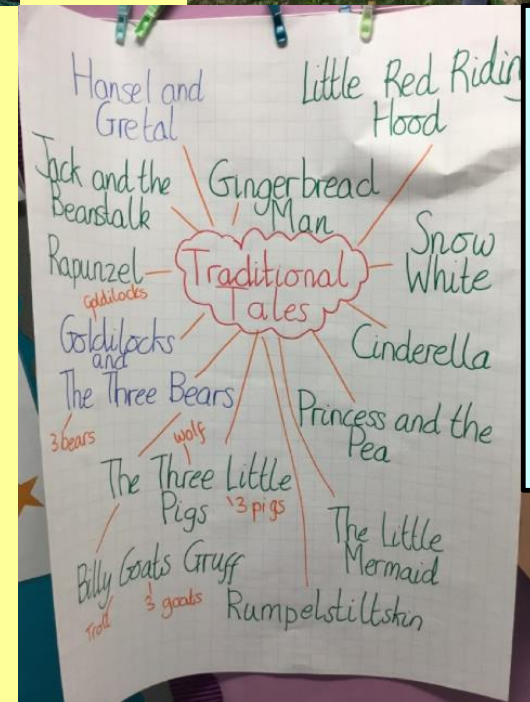 Hansel and
Gretal
Little Red Ridin
Hood
Jack and the
Beanstalk
Gingerbread
Man
Snow
White
Rapunzel
Traditional
Tales
Goldilocks
Goldilocks
and
The Three Bears
3 bears
Cinderella
Princess and the
Pea
wolf
The Three Little
Pigs
3 pigs
The Little
Mermaid
Billy Goats Gruff
Troll
3 goats
Rumpelstiltskin